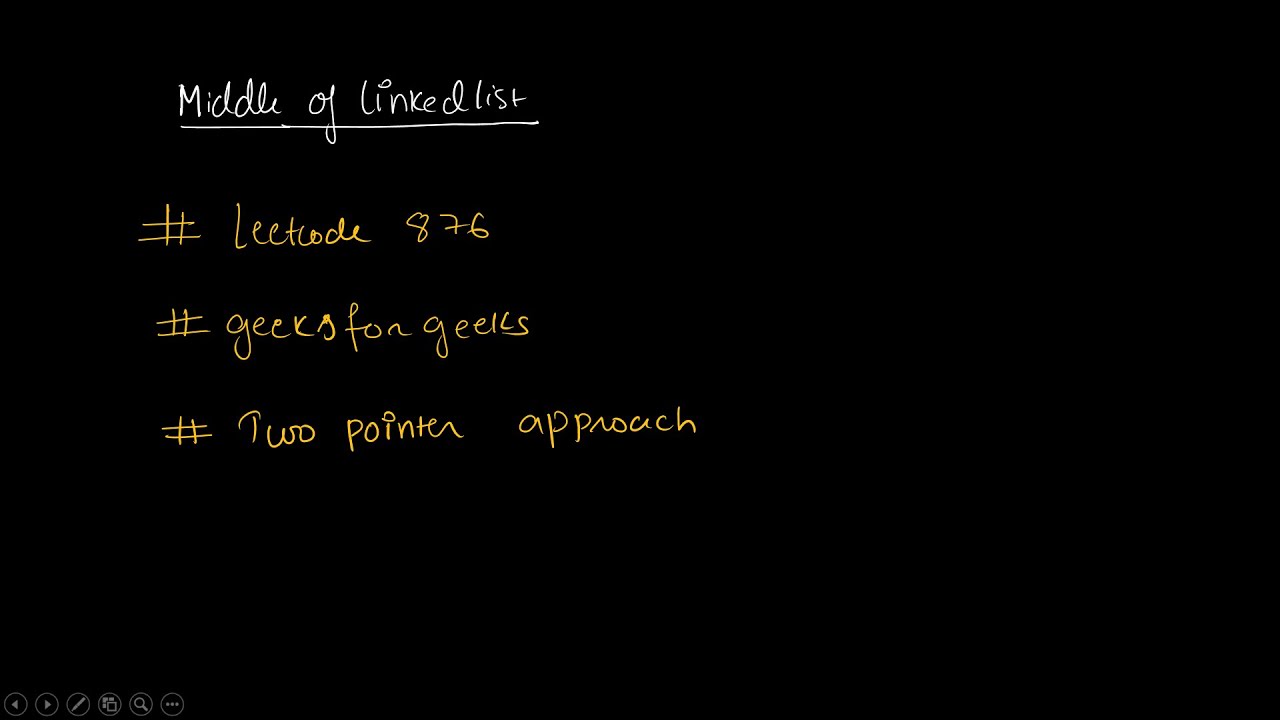 Middle of linkedlist
# leetcode 876
# geeksforgeeks
# Two pointer approach